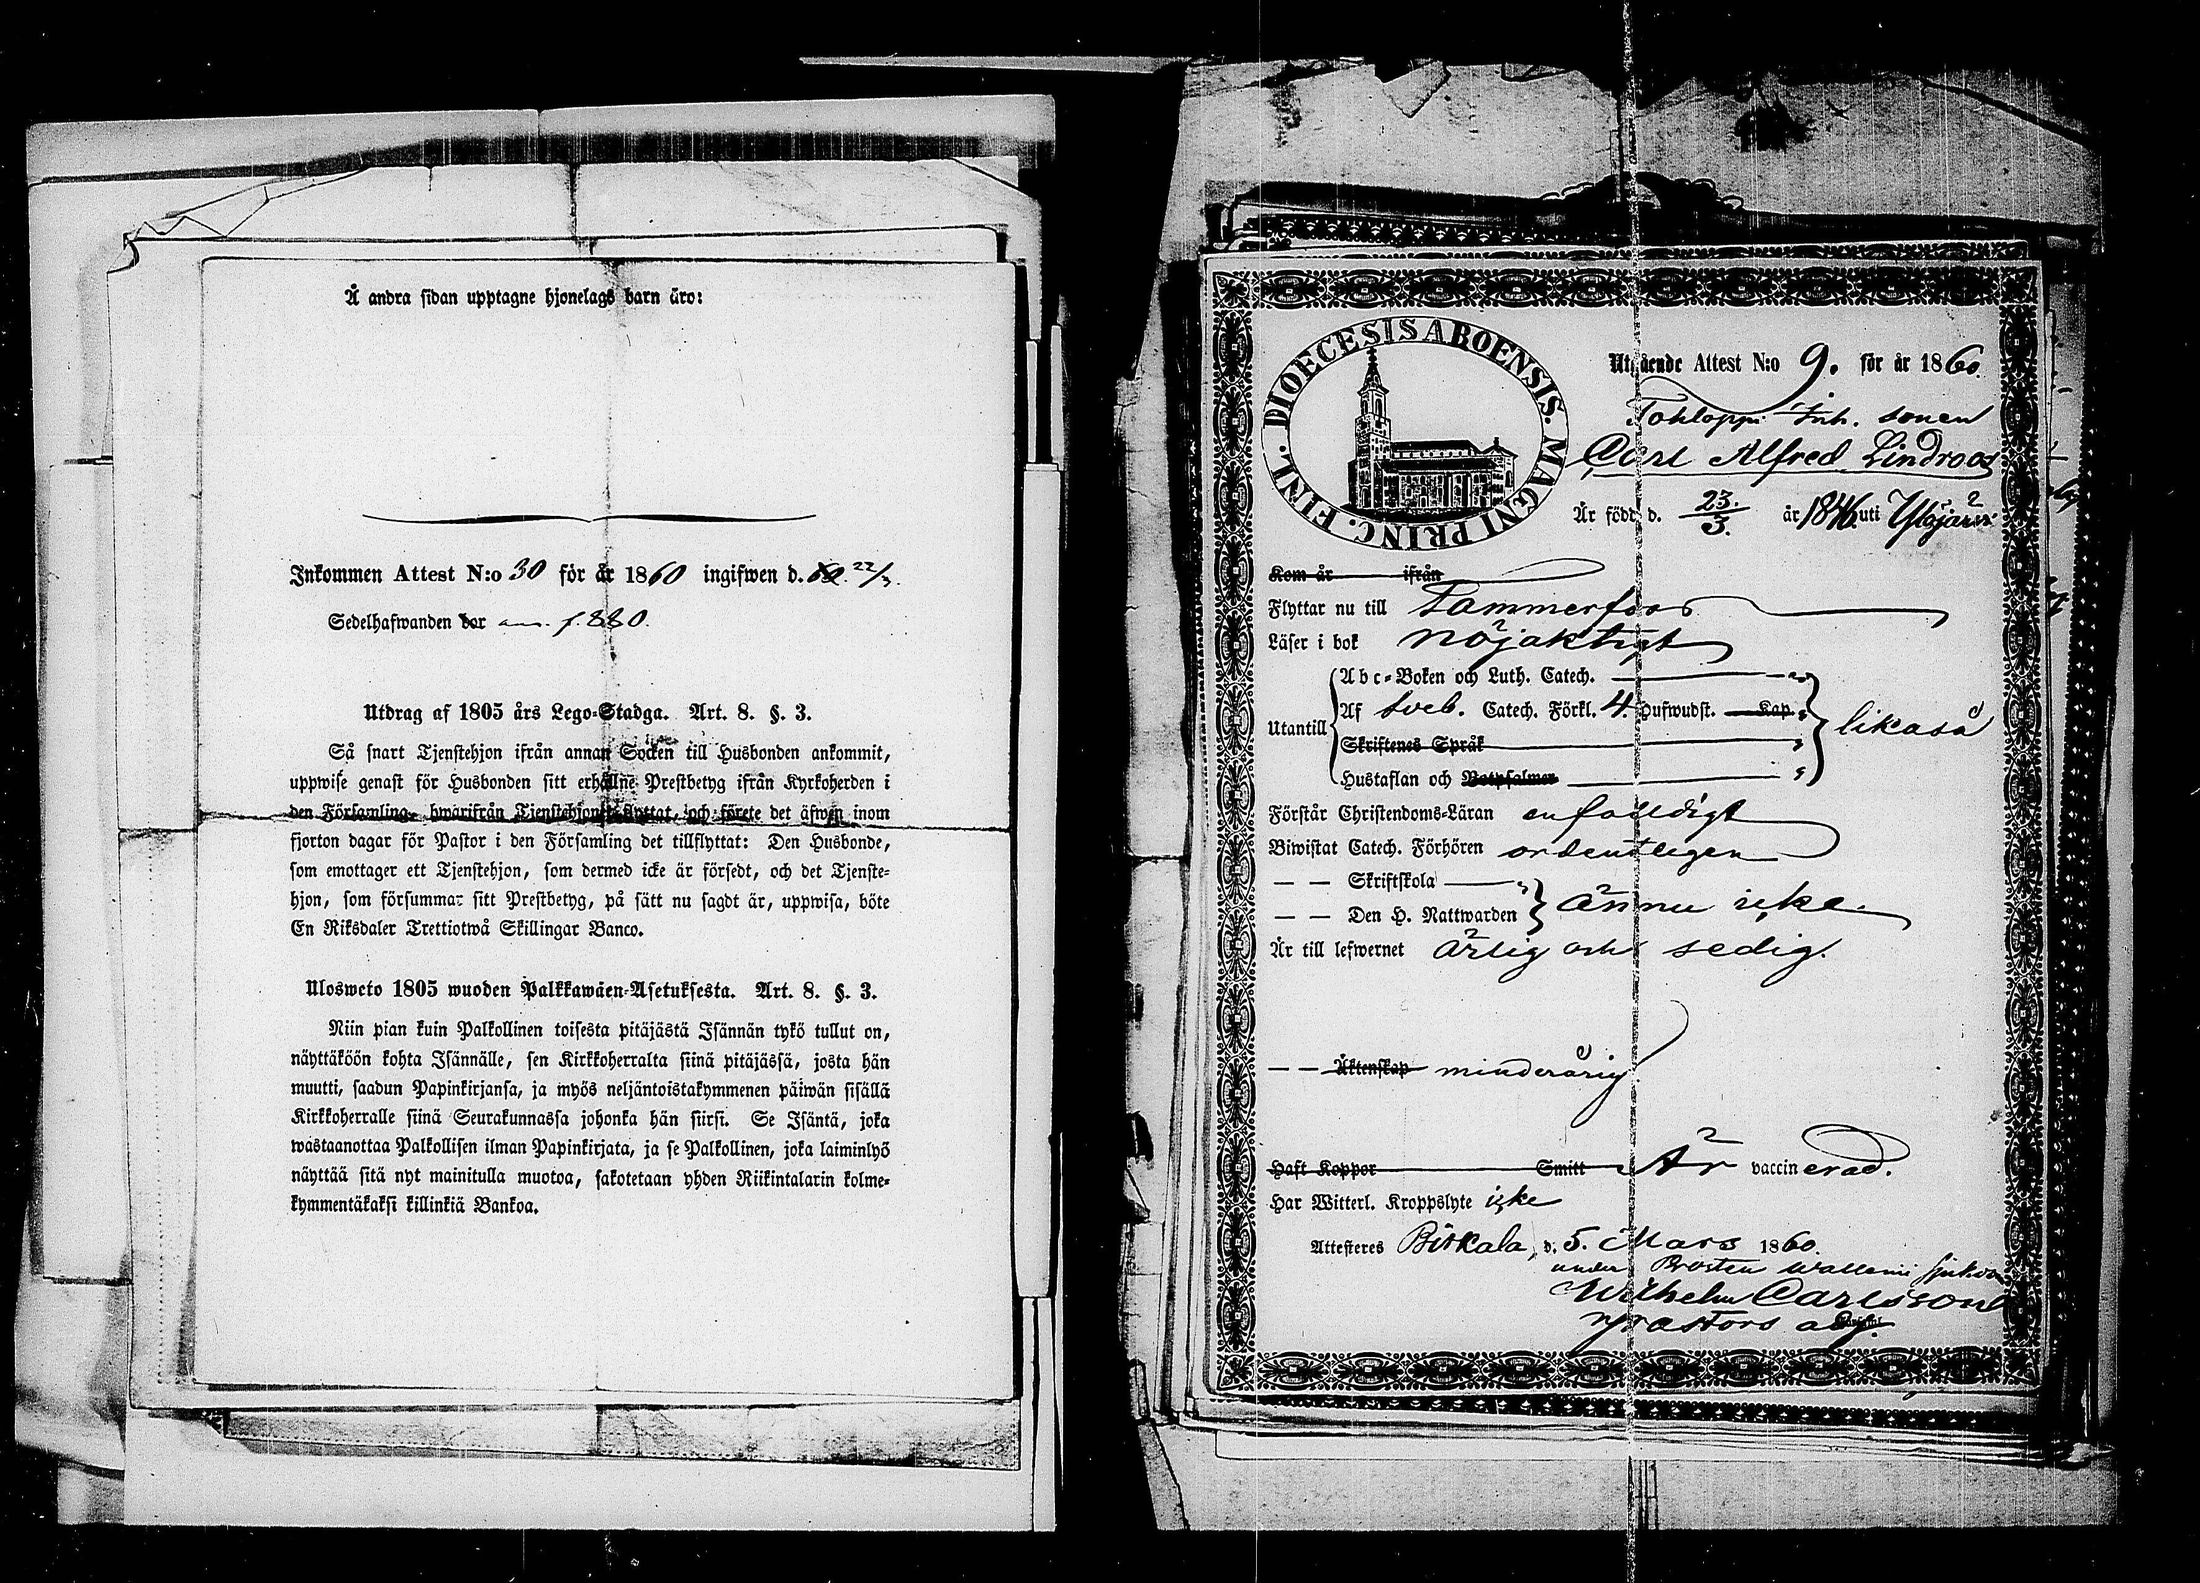 Å andra sidan upptagne hjonelags barn äro:
Inkommen Attest N:o 30 för år 1860 ingifwen d. 22/3.
Sedelhafwanden bor f. 880.
Utdrag af 1805 års Lego-Stadga. Art. 8. §. 3.
Så snart Tjenstehjon ifrån annan Socken till Husbonden ankommit,
uppwise genast för Husbonden sitt erhållne Prestbetyg ifrån Kyrkoherden i
den Församling, hwarifrån Tjenstehjonet flyttat, och förete det äfwen inom
fjorton dagar för Pastor i den Församling det tillflyttat: Den Husbonde,
som emottager ett Tjenstehjon, som dermed icke är försedt, och det Tjenste-
hjon, som försummar sitt Prestbetyg, på sätt nu sagdt är, uppwisa, böte
En Riksdaler Trettiotwå Skillingar Banco.
Ulosweto 1805 wuoden Palkkawäen-Asetuksesta. Art. 8. §. 3.
Niin pian kuin Palkollinen toisesta pitäjästä Isännän tykö tullut on,
näyttäköön kohta Isännälle, sen Kirkkoherralta siinä pitäjässä, josta hän
muutti, saadun Papinkirjansa, ja myös neljäntoistakymmenen päiwän sisällä
Kirkkoherralle siinä Seurakunnassa johonka hän siirsi. Se Isäntä, joka
wastaanottaa Palkollisen ilman Papinkirjata, ja se Palkollinen, joka laiminlyö
näyttää sitä nyt mainitulla muotoa, sakotetaan yhden Riikintalarin kolme-
kymmentäkaksi killinkiä Bankoa.
DIOECESIS ABOENSIS. MAGNI PRINC. FINL.
Utgående Attest N:o 9. för år 1860.
Tohloppi Inh. sonen
Carl Alfred Lindroos
Är född d. 23./3. år 1846 uti Ylöjärvi
Kom år ifrån
Flyttar nu till Tammerfors
Läser i bok nöjaktigt
Abc-Boken och Luth. Catech.
Utantill Af Sveb. Catech. Förkl. 4 Hufwudst. Kap. likaså
Skriftenes Språk
Hustaflan och Botpsalmer
Förstår Christendoms-Läran enfaldigt
Biwistat Catech. Förhören ordentligen
— — Skriftskola
— — Den H. Nattwarden ännu icke
Är till lefwernet ärlig och sedig.
— — Äktenskap minderårig
Haft Koppor Smitt Är vaccinerad.
Har Witterl. Kroppslyte icke
Attesteres Birkala, d. 5. Mars 1860.
under Prosten Wallenii sjukdom
Wilhelm Carlsson
v pastors adj.